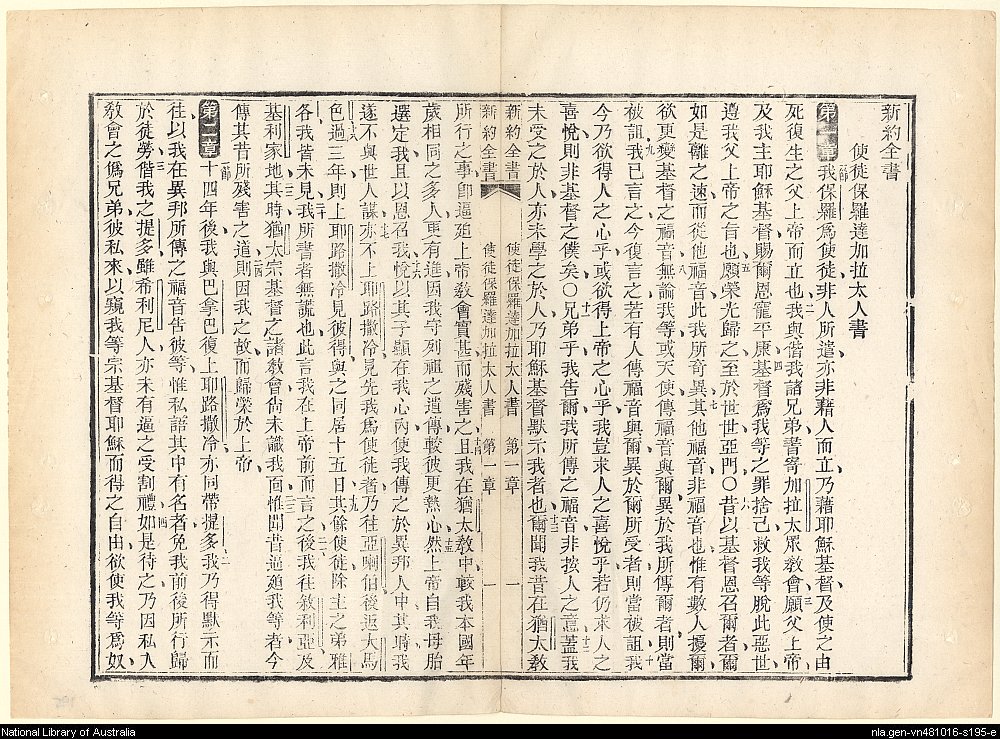 新約全書
使徒保羅達加拉太人書
第一章 一節 我保羅爲使徒非人所遣亦非藉人而立乃藉耶穌基督及使之由
死復生之父上帝而立也二我與偕我諸兄弟書寄加拉太眾敎會三願父上帝
及我主耶穌基督賜爾恩寵平康四基督爲我等之罪捨己救我等脫此惡世
遵我父上帝之旨也五願榮光歸之至於世世亞門〇六昔以基督恩召爾者爾
如是離之速而從他福音此我所奇異七其他福音非福音也惟有數人擾爾
欲更變基督之福音八無論我等或天使傳福音與爾異於我所傳爾者則當
被詛九我已言之今復言之若有人傳福音與爾異於爾所受者則當被詛十我
今乃欲得人之心乎或欲得上帝之心乎我豈求人之喜悅乎若仍求人之
喜悅則非基督之僕矣〇十一兄弟乎我告爾我所傳之福音非按人之意十二蓋我
未受之於人亦未學之於人乃耶穌基督默示我者也十三爾聞我昔在猶太敎
新約全書 使徒保羅達加拉太人書 第一章 一
新約全書 使徒保羅達加拉太人書 第一章 一
所行之事卽逼廹上帝敎會實甚而殘害之十四且我在猶太敎中較我本國年
歲相同之多人更有進因我守列祖之遺傳較彼更熱心十五然上帝自我母胎
選定我且以恩召我十六悅以其子顯在我心內使我傳之於異邦人中其時我
遂不與世人謀十七亦不上耶路撒冷見先我爲使徒者乃往亞喇伯後返大馬
色十八過三年則上耶路撒冷見彼得與之同居十五日十九其餘使徒除主之弟雅
各我皆未見二十我所書者無謊也此言我在上帝前而言之二一後我往敘利亞及
基利家地二二其時猶太宗基督之諸敎會尙未識我面二三惟聞昔逼廹我等者今
傳其昔所殘害之道二四則因我之故而歸榮於上帝
第二章 一節 十四年後我與巴拿巴復上耶路撒冷亦同帶提多二我乃得默示而
往以我在異邦所傳之福音告彼等惟私語其中有名者免我前後所行歸
於徒勞三偕我之提多雖希利尼人亦未有逼之受割禮四如是待之乃因私入
敎會之僞兄弟彼私來以窺我等宗基督耶穌而得之自由欲使我等爲奴
National Library of Australia
nla.gen-vn481016-s195-e